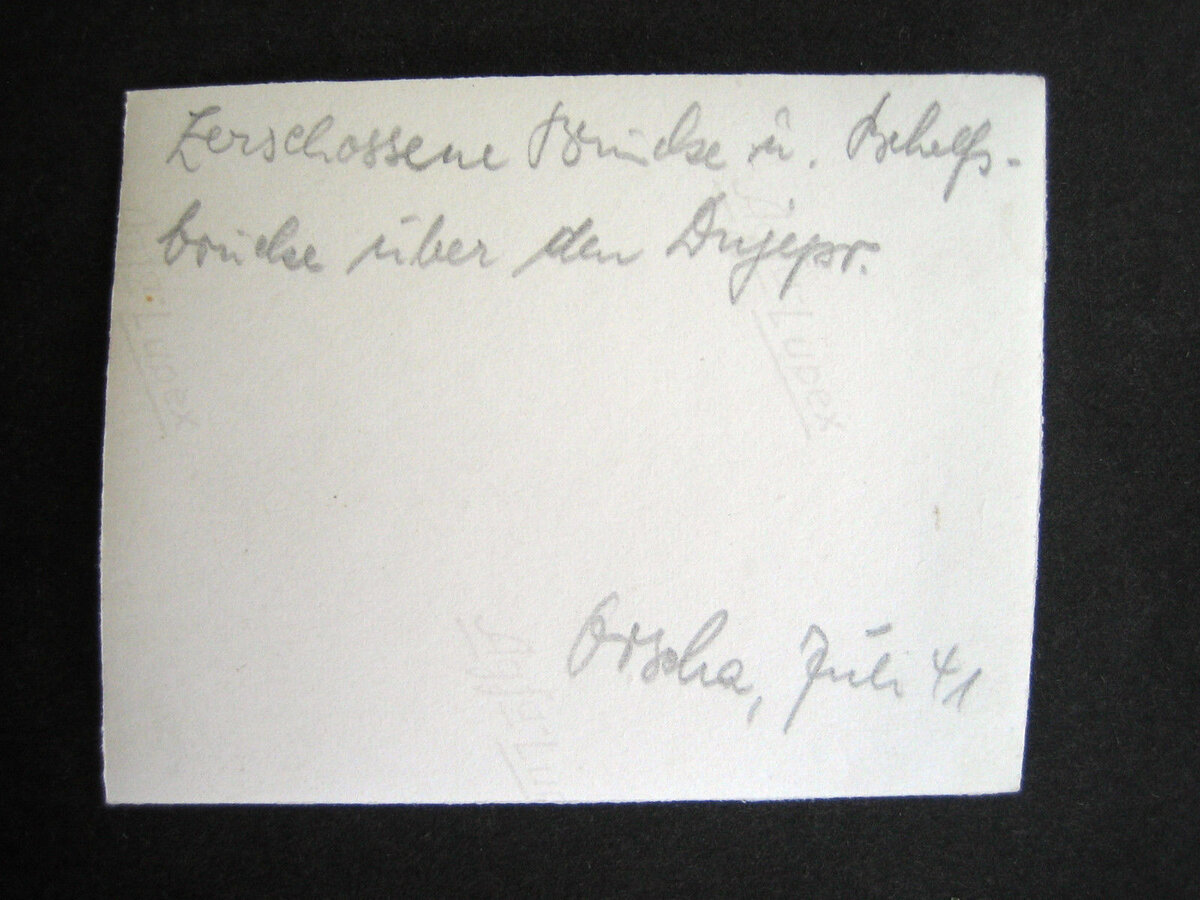 Zerschossene Brücke u. Behelfs-
brücke über den Dnjepr.
Orscha, Juli 41
Lupex
Lupex